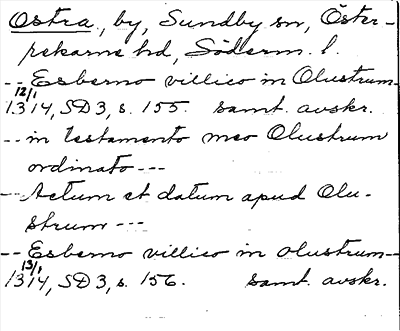 Ostra, by, Sundby sn, Öster-
rekarne hd, Söderm. l.
-- Esberno villico in Olustrum--
12/1
1314, SD 3, s. 155. samt. avskr.
-- in testamento meo Olustrum
ordinato ---
-- Actum et datum apud Olu-
strum ---
-- Esberno villico in Olustrum--
13/1
1314, SD 3, s. 156. samt. avskr.